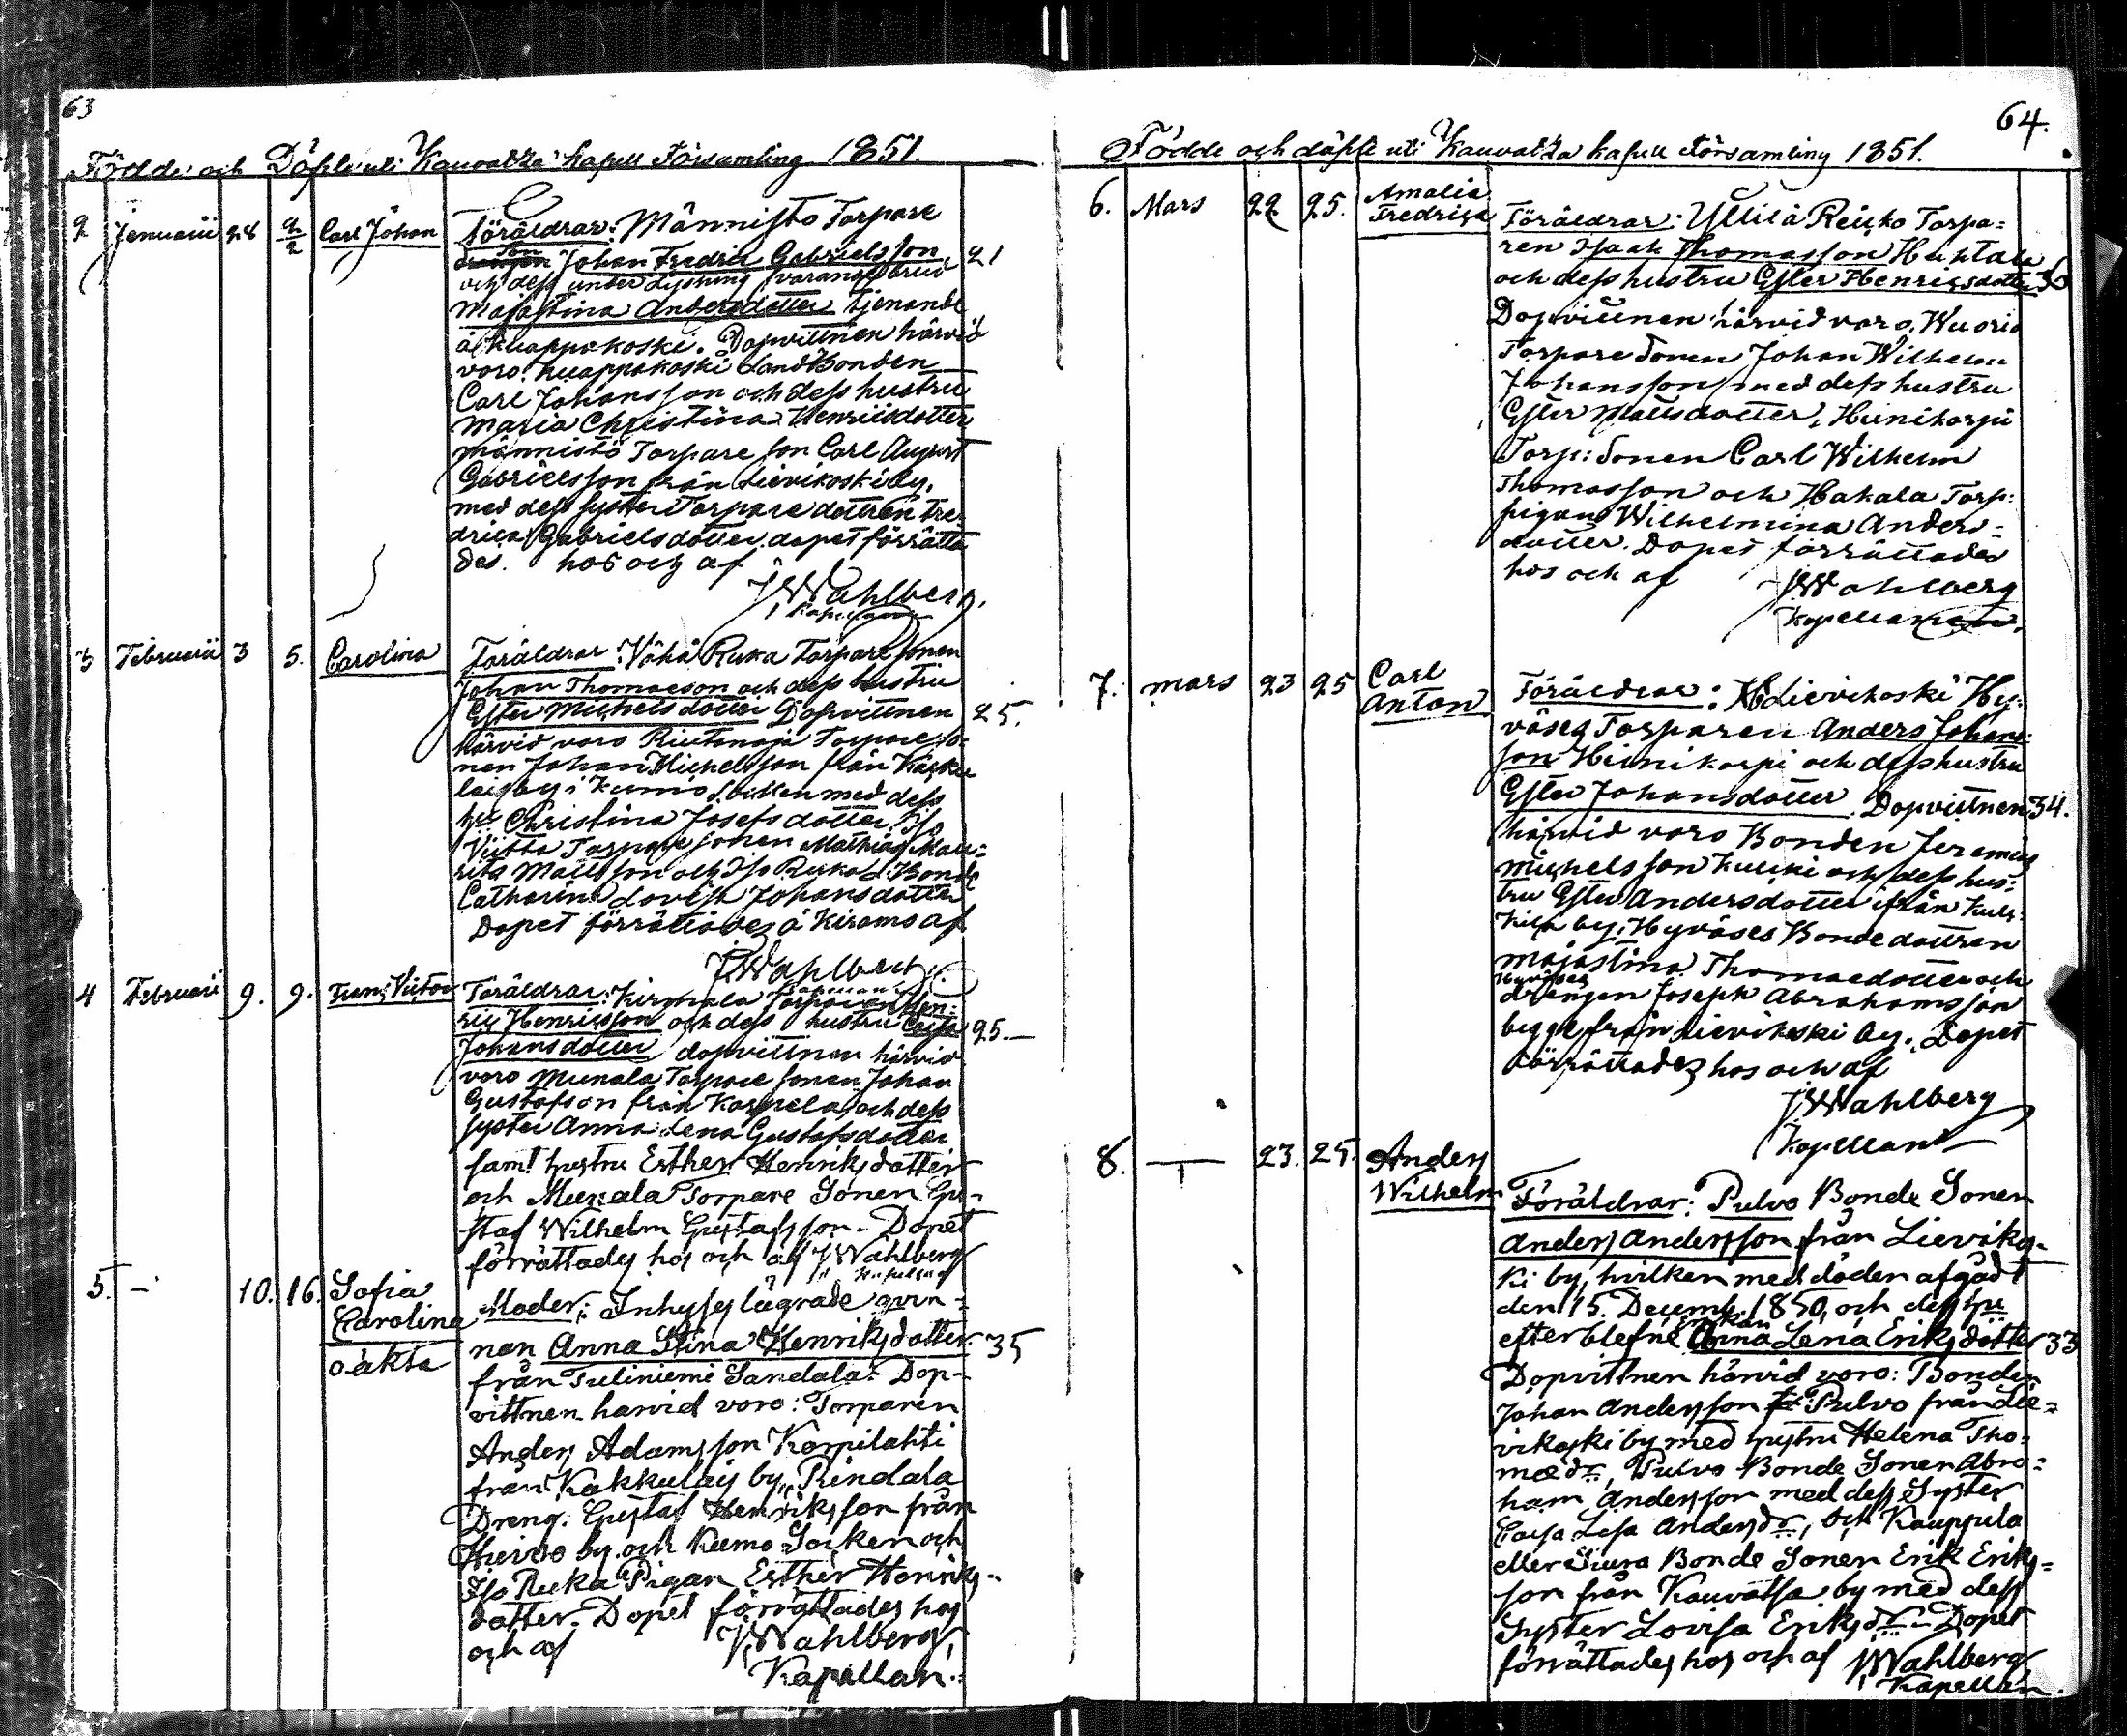 63
Födde och Döpte uti Kauvatza kapell Församling 1851.
2 Januarii 28 2/2 Carl Johan Föräldrar: Männistö Torpare
son Johan Fredric Gabrielsson 21
och dess under Lysning varande brud
Majastina Andersdotter tjenande
å Kuappakoski. Dopvittnen härvid
voro. Kuappakoski LandBonden
Carl Johansson och dess hustru
Maria Christina Henricsdotter
männistö Torpare son Carl August
Gabrielsson från Lievikoski by,
med dess syster Torpare dottren Fre-
drica Gabrielsdotter. dopet förrätta
des. hos och af
JWahlberg.
Kapellan
3 Februarii 3 5. Carolina Föräldrar: Vähä Ruka Torpare sonen
Johan Thomasson och dess hustru
Ester Michelsdotter Dopvittnen 25.
härvid voro Riutanoja Torpare so-
nen Johan Michelsson från Käcku
lais by i Kumo Socken med dess
hu Christina Josefsdotter Iso
Viitta Torpare sonen Mathias Mau-
rits Mattsson och Iso Ruka d. Bonde
Catharina Lovisa Johansdotter
Dopet förrättades å Kirams af
JWahlberg
Kapellan
4 Februari 9. 9. Frans Victor Föräldrar: Kirmala Torparen Hen-
ric Henricsson och dess hustru Caisa 25.
Johansdotter dopvittnen härvid
voro Munala Torpare sonen Johan
Gustafsson från Karpela, och dess
syster Anna Lena Gustafsdotter
samt hustru Esther Henriksdotter
och Munala Torpare Sonen Gu-
staf Wilhelm Gustafsson. Dopet
förrättades hos och af JWahlberg
Kapellan
5. – 10. 16. Sofia
Carolina
o.äkta
Moder: Inhyses lägrade qvin-
nan Anna Stina Henriksdotter 35
från Tuliniemi Sandala. Dop-
vittnen harvid voro: Torparen
Anders Adamsson Korpilahti
från Kakkulais by, Rindala
Dreng. Gustaf Henriksson från
Hiirvo by och Kumo Socken och
Iso Ruka Pigan Esther Henriks-
dotter. Dopet förrättades hos
och af JWahlberg
Kapellan.
64.
Födde och döpte uti Kauvatza kapell Församling 1851.
6. Mars 22 25. Amalia
Fredrica
Föräldrar: Yllilä Reicko Torpa-
ren Isaak Thomasson Huhtala
och dess hustru Ester Henricsdotter 36
Dopvittnen härvid voro, Wuorio
Torpare Sonen Johan Wilhelm
Johansson med dess hustru
Ester Mattsdotter, Heinikorpi
Torp: Sonen Carl Wilhelm
Thomasson och Hakala Torp:
pigan Wilhelmina Anders-
dotter. Dopet förrättades
hos och af JWahlberg
Kapellan.
7. mars 23 25 Carl
Anton
Föräldrar: Lievikoski Hy-
väses Torparen Anders Johans-
son Heinikorpi och dess hustru
Ester Johansdotter. Dopvittnen 34.
härvid voro Bonden Jeremias
Michelsson Kuliki och dess hus-
tru Ester Andersdotter ifrån Kul-
kila by, Hyväses Bonde dottren
Majastina Thomasdotter och
Hyväses
drengen Joseph Abrahamsson
begge från Lievikoski by. Dopet
förrättades hos och af
JWahlberg
Kapellan
8. – 23. 25. Anders
Wilhelm
Föräldrar: Pulvo Bonde Sonen
Anders Andersson från Lieviko-
ki by, hvilken med döden afgådt
den 15. Decemb. 1850, och dess hu
efterblefne Enkan Anna Lena Eriksdotter 33
Dopvittnen härvid voro: Bonden
Johan Andersson Pulvo från Lie-
vikoski by med hustru Helena Tho-
mædr, Pulvo Bonde Sonen Abra-
ham Andersson med dess Syster
Caisa Lisa Andersdr, och Kauppila
eller Siura Bonde Sonen Erik Eriks-
son från Kauvatsa by med dess
Syster Lovisa Eriksdr. Dopet
förrättades hos och af JWahlberg
Kapellan.